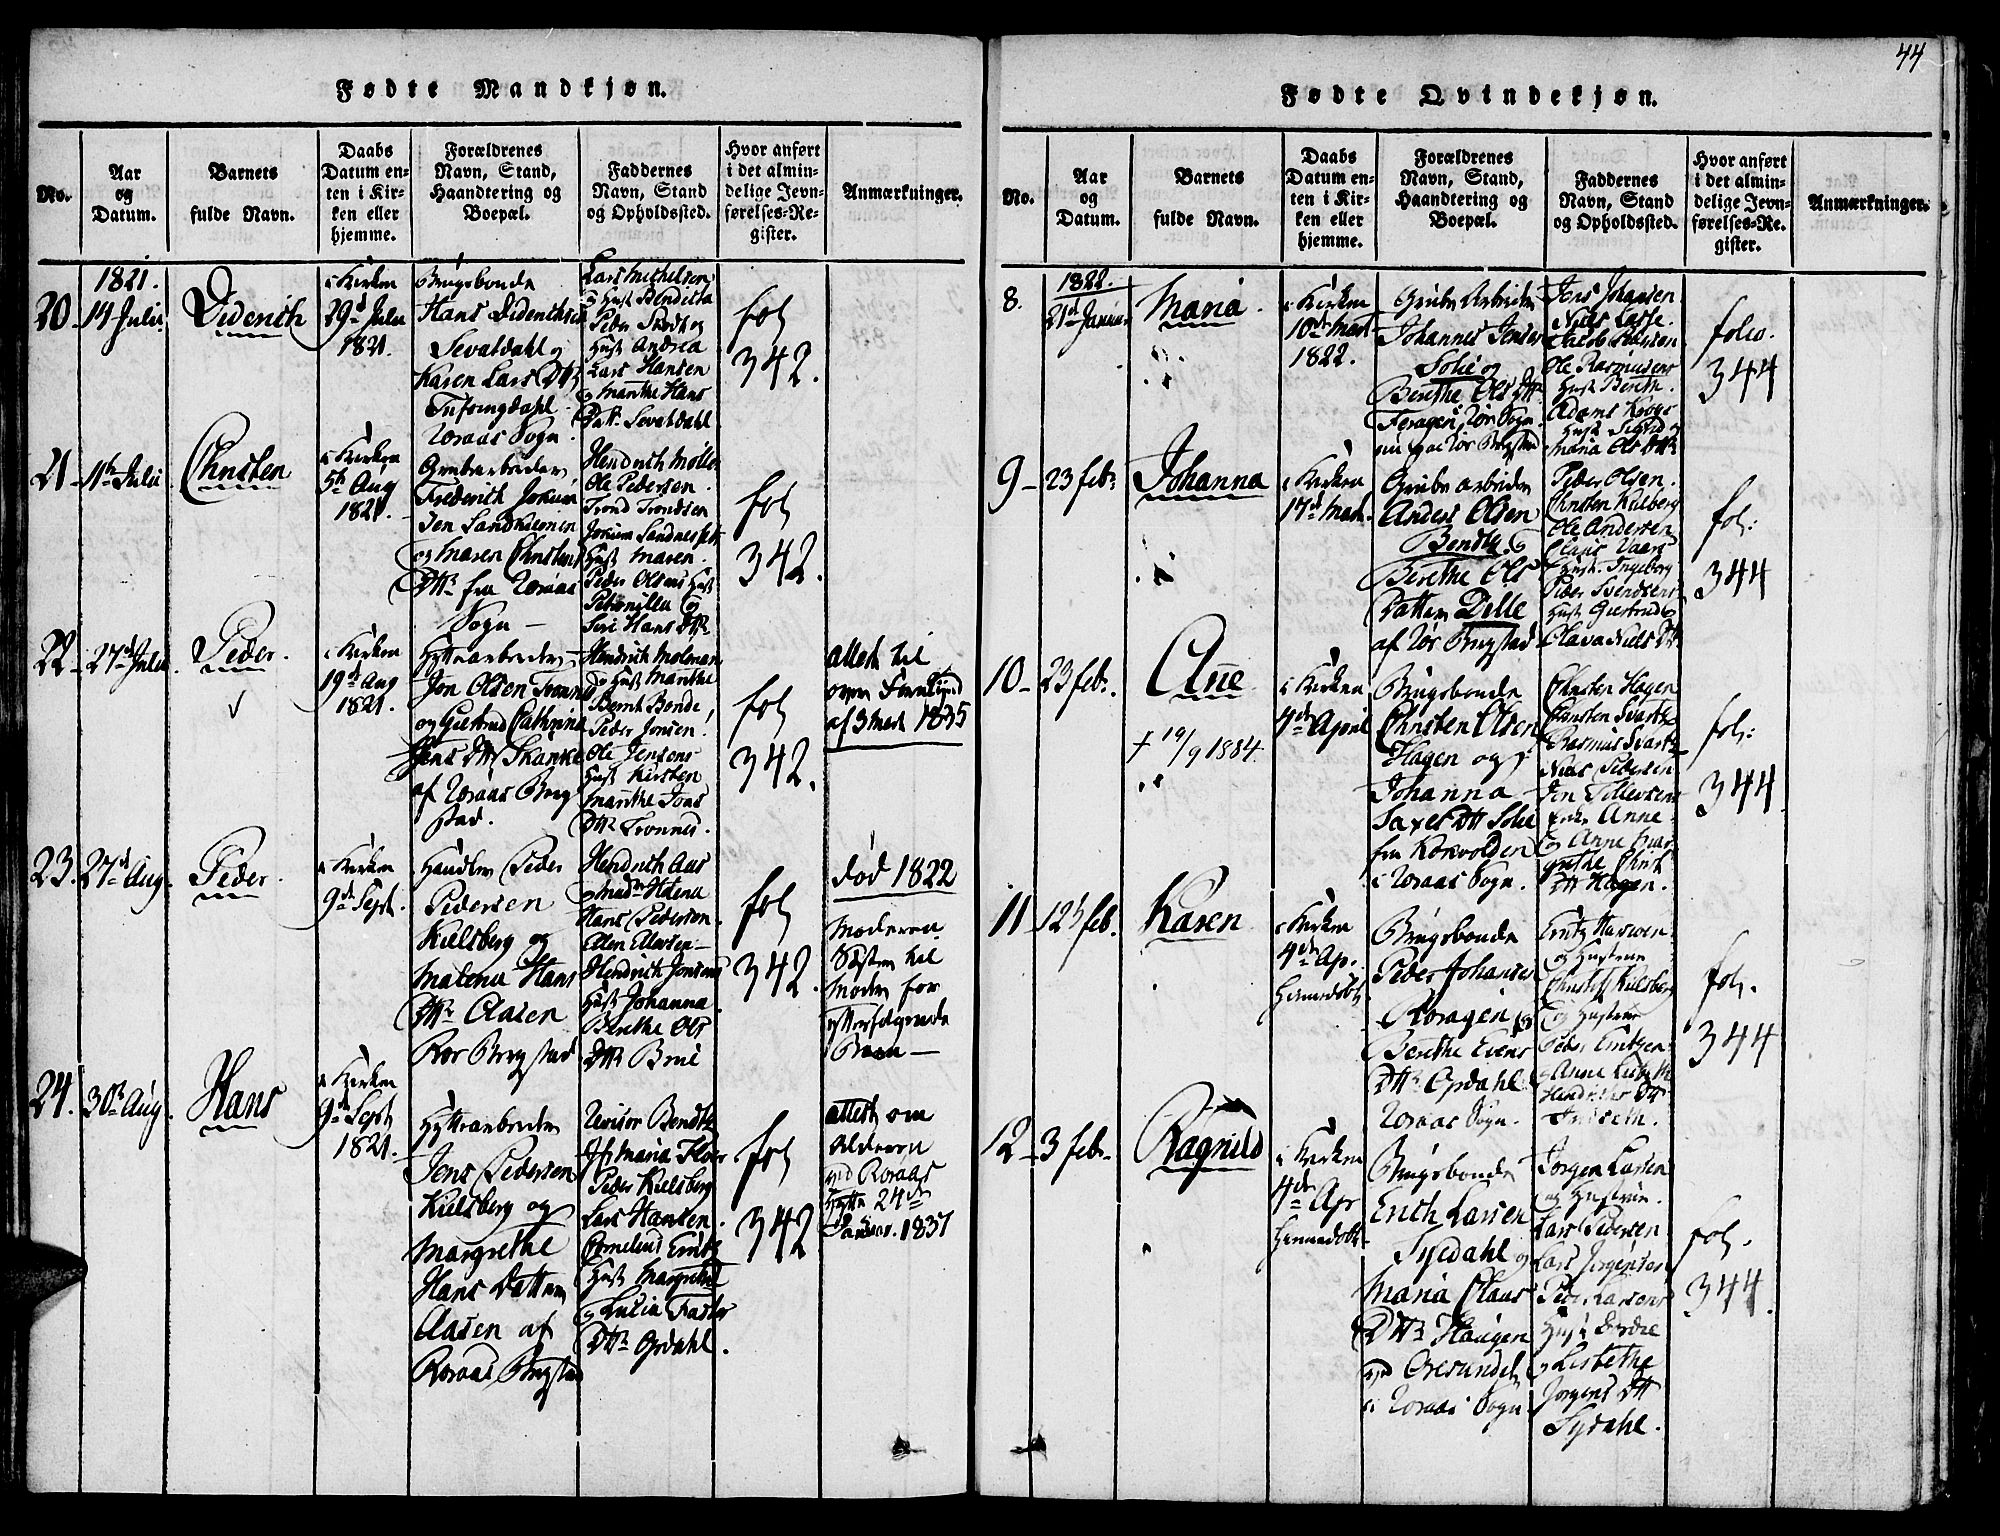 44
Fødte Mandkjøn.
No.
Aar
og
Datum.
Barnets
fulde Navn.
Daabs
Datum en-
ten i Kir-
ken eller
hjemme.
Forældrenes
Navn, Stand,
Haandtering og
Boepæl.
Faddernes
Navn, Stand
og Opholdssted.
Hvor anført
i det almin-
delige Jevn-
førelses-Re-
gister.
Anmærkninger.
1821.
20
14 Julii
Diderich
i Kirken
29d Julii
1821.
Brugsbonde
Hans Diderichsen
Sevaldahl og
Karen Lars Dttr
Tufsingdahl
Roraas Sogn.
Lars Michelsen
Hust Bendicta
Hust Andrea
Lars Hansen
Marithe Hans
Datt. Sevaldahl
fol
342.
21
11te Julii
Christen
i Kirken
5te Aug
1821.
Grubearbeider
Frederich Jokum
Sen Sandkiernen
og Maren Christens
Dttr fra Roraas
Sogn
Hendrich Möller
Ole Pedersen.
Trond Trondsen
Hust Maren.
Peder Olsens Hust
Petronilla
Siri Hans Dttr
fol
342.
22
27d Julii
Peder.
i Kirken
19d Aug
1821.
Hyttearbeider
Jon Olsen Tronnes
og Giertrud Cathrina
Jens Dttr Skanke
af Roraas Berg
stad.
Hendrich Molman
Hust Marithe
Bernt Bonde
Peder Jonsen.
Ole Jensens
Hust Kirsten
Marithe Jons
Dttr Tronnes.
fol
342.
attest til
af 3 Mart 1835
23.
27d Aug.
Peder.
i Kirken
9de Sept.
Handler Peder
Pedersen
Kielsberg og
Malena Hans
Dttr Aasen
Ror Bergstad
Hendrich Aas
Hans Pedersen.
Hendrich Jonsens
Hust Johanna
Berethe Ols
Dttr Brue
fol
342.
død 1822
Moderen
Søster til
Moder for
efterfølgende
Barn
24.
30te Aug.
Hans
i Kirken
9de Sept
1821.
Hyttearbeider
Jens Pedersen
Kielsberg og
Margrethe
Hans Datter
Aasen af
Roraas Bergstad
Revisor Bendtz
Jf Maria Floer
Peder Kielsberg
Lars Hansen.
Hust Margrethe
Dttr Opdahl.
fol
342
attest om
Alderen
ved Roraas
Hytte 24de
Januar. 1837
Fødte Qvindekjøn.
No.
Aar
og
Datum.
Barnets
fulde Navn.
Daabs
Datum en-
ten i Kir-
ken eller
hjemme.
Forældrenes
Navn, Stand,
Haandtering og
Boepæl.
Faddernes
Navn, Stand
og Opholdssted.
Hvor anført
i det almin-
delige Jevn-
førelses-Re-
gister.
Anmærkninger.
1822.
8.
21d Januar
Maria
i Kirken
10de Mart
1822.
Grube Arbeider
Johannes Jensen
Solie og
Berethe Ols Dttr
Feragen, Ror Sogn.
Jens Johansen
Niels Lasse.
Jacob Pedersen
Ole Rasmusens
Hust Bereth.
Adams Krogs
Hust Sigrid
Maria Ols Dttr
folio.
344
9
23 Febr
Johanna
i Kirken
17de Mart.
Grube arbeider
Anders Olsen
Bendtz og
Berethe Ols
Datter Dille
af Ror Bergstad
Peder Olsen.
Christen Kielberg
Ole Andersen
Hust. Ingeborg
Peder Svendsens
Hust Giertrud
Olava Niels Dtt.
fol:
344
10
23 Febr.
Anne
+ 19/9 1884.
i Kirken
4de April
Brugsbonde
Christen Olsen
Hagen og
Johanna
Saxes Dttr Solie
fra Kokvolden
i Roraas Sogn.
Christen Hagen
Christen Svartz
Rasmus Svartz
Niels Pedersen
Jon Tollevsens
Enke Anne
Anne Mar
grethe Christ
Dtt Hagen.
fol:
344
11
12te Feb.
Karen
i Kirken
4de Ap.
hiemedøbt
Brugsbonde
Peder Johansen
Korragen og
Berethe Evens
Dttr Opdahl
Roraas Sogn.
og Hustrue
Christoff Kielsberg
og Hustrue
Peder Erntzen
fol.
344
12
3 Febr.
Ragnild
i Kirken
4de Ap
hiemedøbt
Brugsbonde
Erich Larsen
Sysedahl og
Maria Claus
Dttr Haugen
ved Oresundet
i Roraas Sogn.
Jorgen Larsen
og Hustrue.
Lars Pedersen
Lars Jorgensen
Peder Larsens
Hust Dordie
Lisbethe
Jorgens Dtt
Sysdahl.
fol.
344